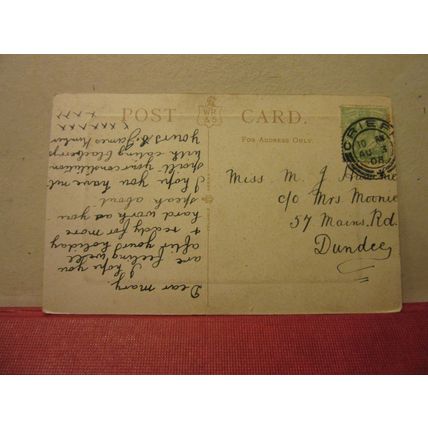 POST CARD.
WR
&S
FOR ADDRESS ONLY.
CRIEFF
10
AU 3
08
Miss M. J
c/o Mrs Moonie
57 Mains. Rd.
Dundee
Dear Mary,
I hope you
are feeling well
after your holiday
& ready for more
hard work as you
speak about.
I hope you have not
spoilt your constitution
with eating blackberrys
yours
xxxxxxx
xxxx